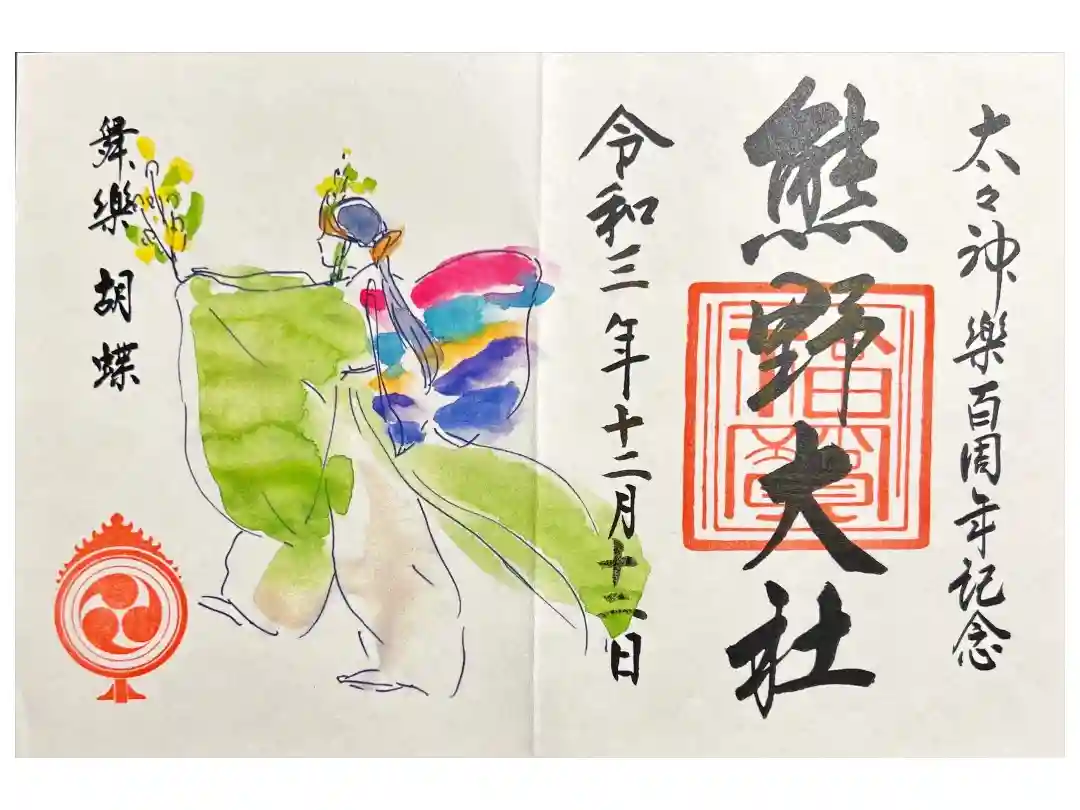 太々神樂百周年記念
熊野大社
令和三年十二月十日
舞樂 胡蝶